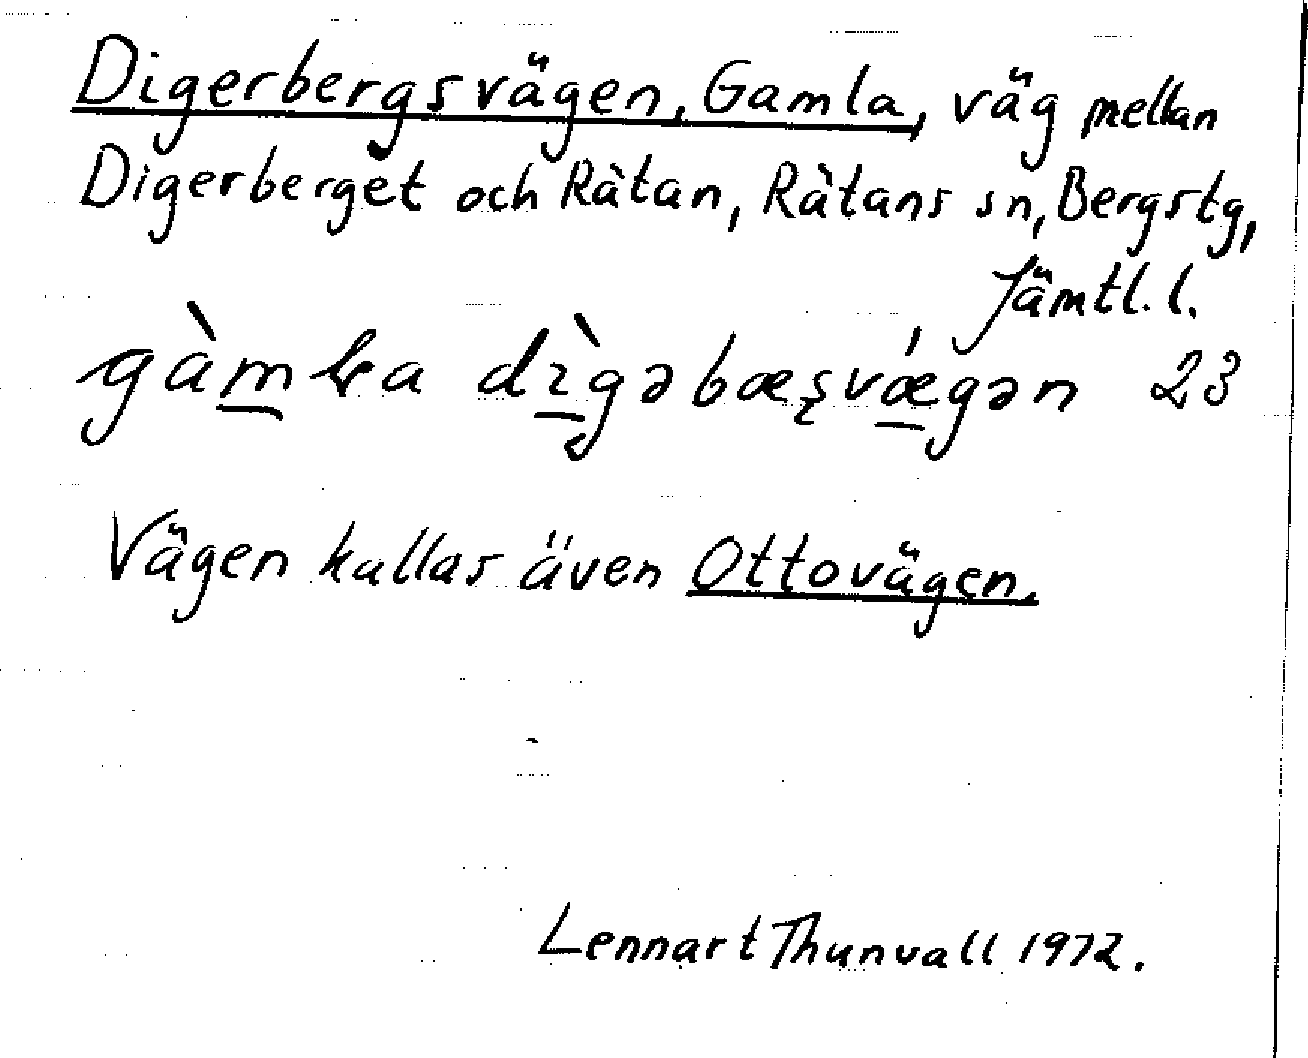 Digerbergsvägen, Gamla, väg mellan
Digerberget och Rätan, Rätans sn, Bergstg,
Jämtl. l.
23
Vägen kallas även Ottovägen.
Lennart Thunvall 1972.